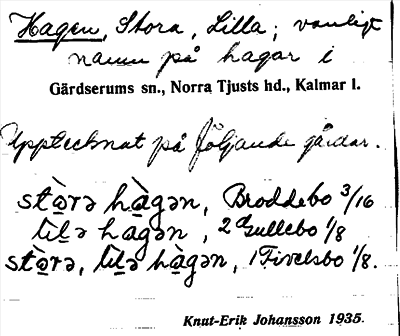 Hagen, Stora, Lilla; vanligt
namn på hagar i
Gärdserums sn., Norra Tjusts hd., Kalmar l.
Upptecknat på följande gårdar.
stò̱rə hà̱gən, Broddebo 3/16
lìḻə hagən, 2 Gullebo 1/8
stò̱rə, lìḻə hà̱gən, 1 Fivelsbo 1/8.
Knut-Erik Johansson 1935.